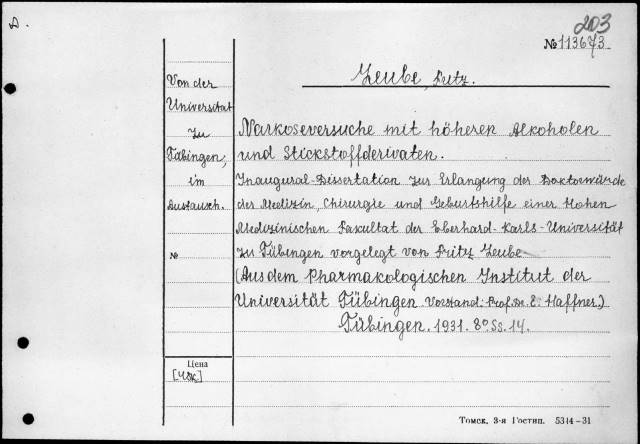 D.
203
№ 113673
Zeube, Fritz.
Von der
Universitat
zu
Tübingen,
im
Austausch.
№
Цена
Narkoseversuche mit höheren Alkoholen
und Stickstoffderivaten.
Inaugural-Dissertation zur Erlangung der Doktorwürde
der Medizin, Chirurgie und Geburtshilfe einer Hohen
Medizinischen Fakultat der Eberhard-Karls-Universität
zu Tübingen vorgelegt von Fritz Zeube
(Aus dem Pharmakologischen Institut der
Universität Tübingen Vorstand: Prof. Dr. E. Haffner.)
Tübingen. 1931. 8º. Ss. 14.
Томск, 3-я Гостип. 5314-31